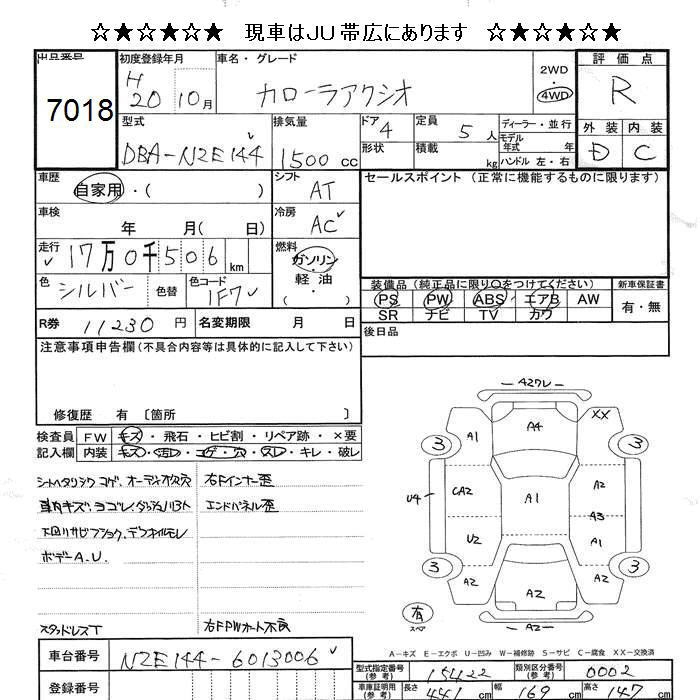 ☆★☆★☆★ 現車はJU帯広にあります ☆★☆★☆★
出品番号 初度登録年月 車名・グレード 2WD 評価点
7018 H 20 10月 カローラアクシオ 4WD R
型式 排気量 ドア 4 定員 5人 ディーラー・並行 外装 内装
DBA-NZE144 1500cc 形状 積載 kg モデル年式 年 ハンドル 左・右 D C
車歴 自家用・( ) シフト AT セールスポイント (正常に機能するものに限ります)
車検 年 月( 日) 冷房 AC
走行 17万0千506km 燃料 ガソリン・軽油・( )
色 シルバー 色替 色コード 1F7 装備品(純正品に限り○をつけてください) 新車保証書
PS PW ABS エアB AW 有・無
SR ナビ TV カワ
R券 11230円 名変期限 月 日 後日品
注意事項申告欄(不具合内容等は具体的に記入して下さい)
修復歴 有 〔箇所
検査員 FW キズ・飛石・ヒビ割・リペア跡・×要
記入欄 内装 キズ・汚レ・コゲ・穴・スレ・キレ・破レ
オーディオ欠穴 右Fインナー歪
エンドパネル歪
下回リサビ
ボデーA.U.
スタッドレスT 右FPWオート不良
42ワレ
A1 A4 XX
3 3
U4 CA2 A1 A2
A3
U2 A1
3 3
A2 A2 A2
有 スペア A2
A-キズ E-エクボ U-凹み W-補修跡 S-サビ C-腐食 XX-交換済
車台番号 NZE144-6013006 型式指定番号(参考) 15422 類別区分番号(参考) 0002
登録番号 車庫証明用(参考) 長さ 441cm 幅 169cm 高さ 147cm